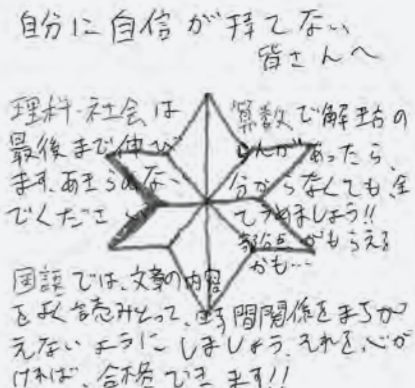 自分に自信が持てない
皆さんへ
理科・社会は
最後まで伸び
ます。あきらめない
でください
算数で解き方の
らんがあったら、
分からなくても、全
てうめましょう!!
部分点がもらえる
かも…
国語では、文章の内容
をよく読みとって、時間関係をまちが
えないようにしましょう。それを、心が
ければ、合格できます!!